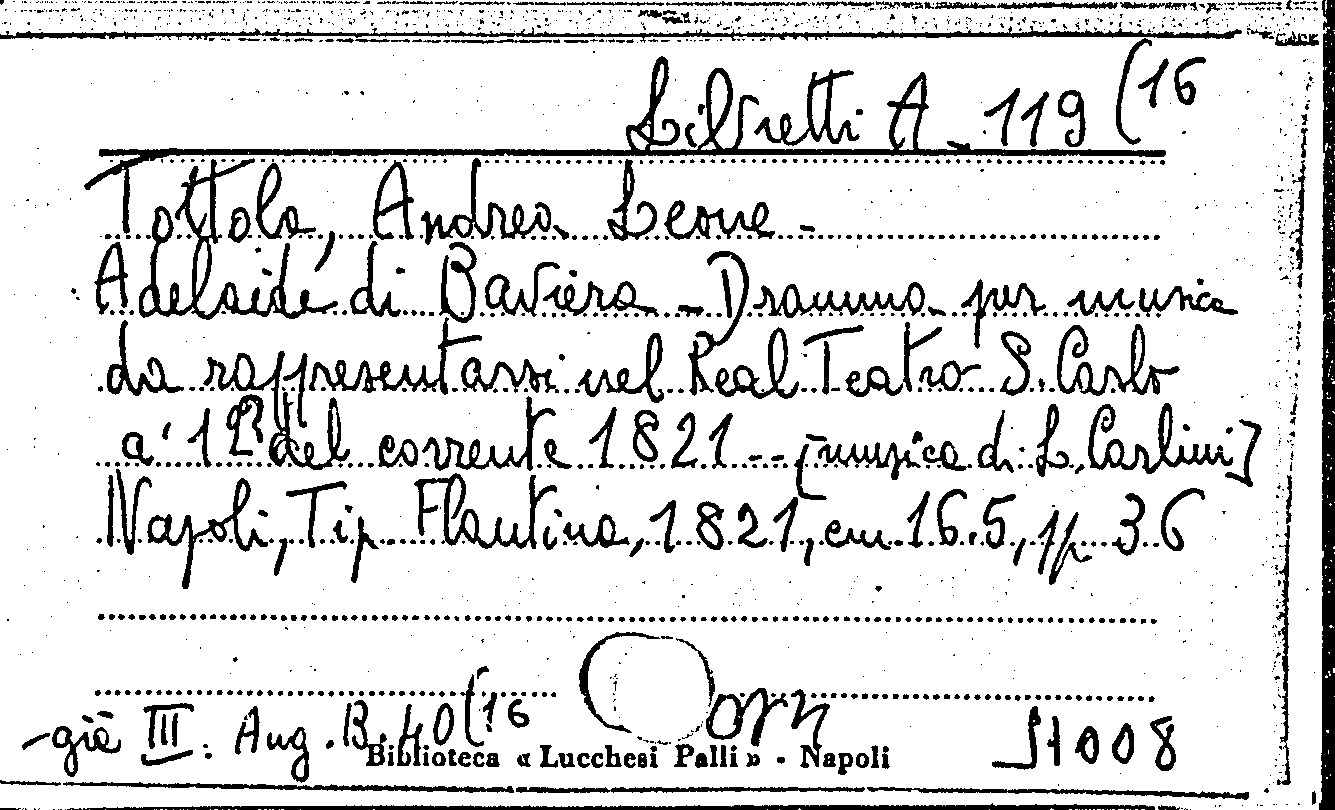 Libretti A - 119 (16
Tottola, Andrea Leone -
Adelaide di Baviera - Dramma per musica
da rappresentarsi nel Real Teatro S. Carlo
a' 12 del corrente 1821 -- [musica di L. Carlini]
Napoli, Tip. Flautina, 1821, cm. 16.5, pp. 36
- già III. Aug. B. 40 (16
Biblioteca « Lucchesi Palli » - Napoli
1008